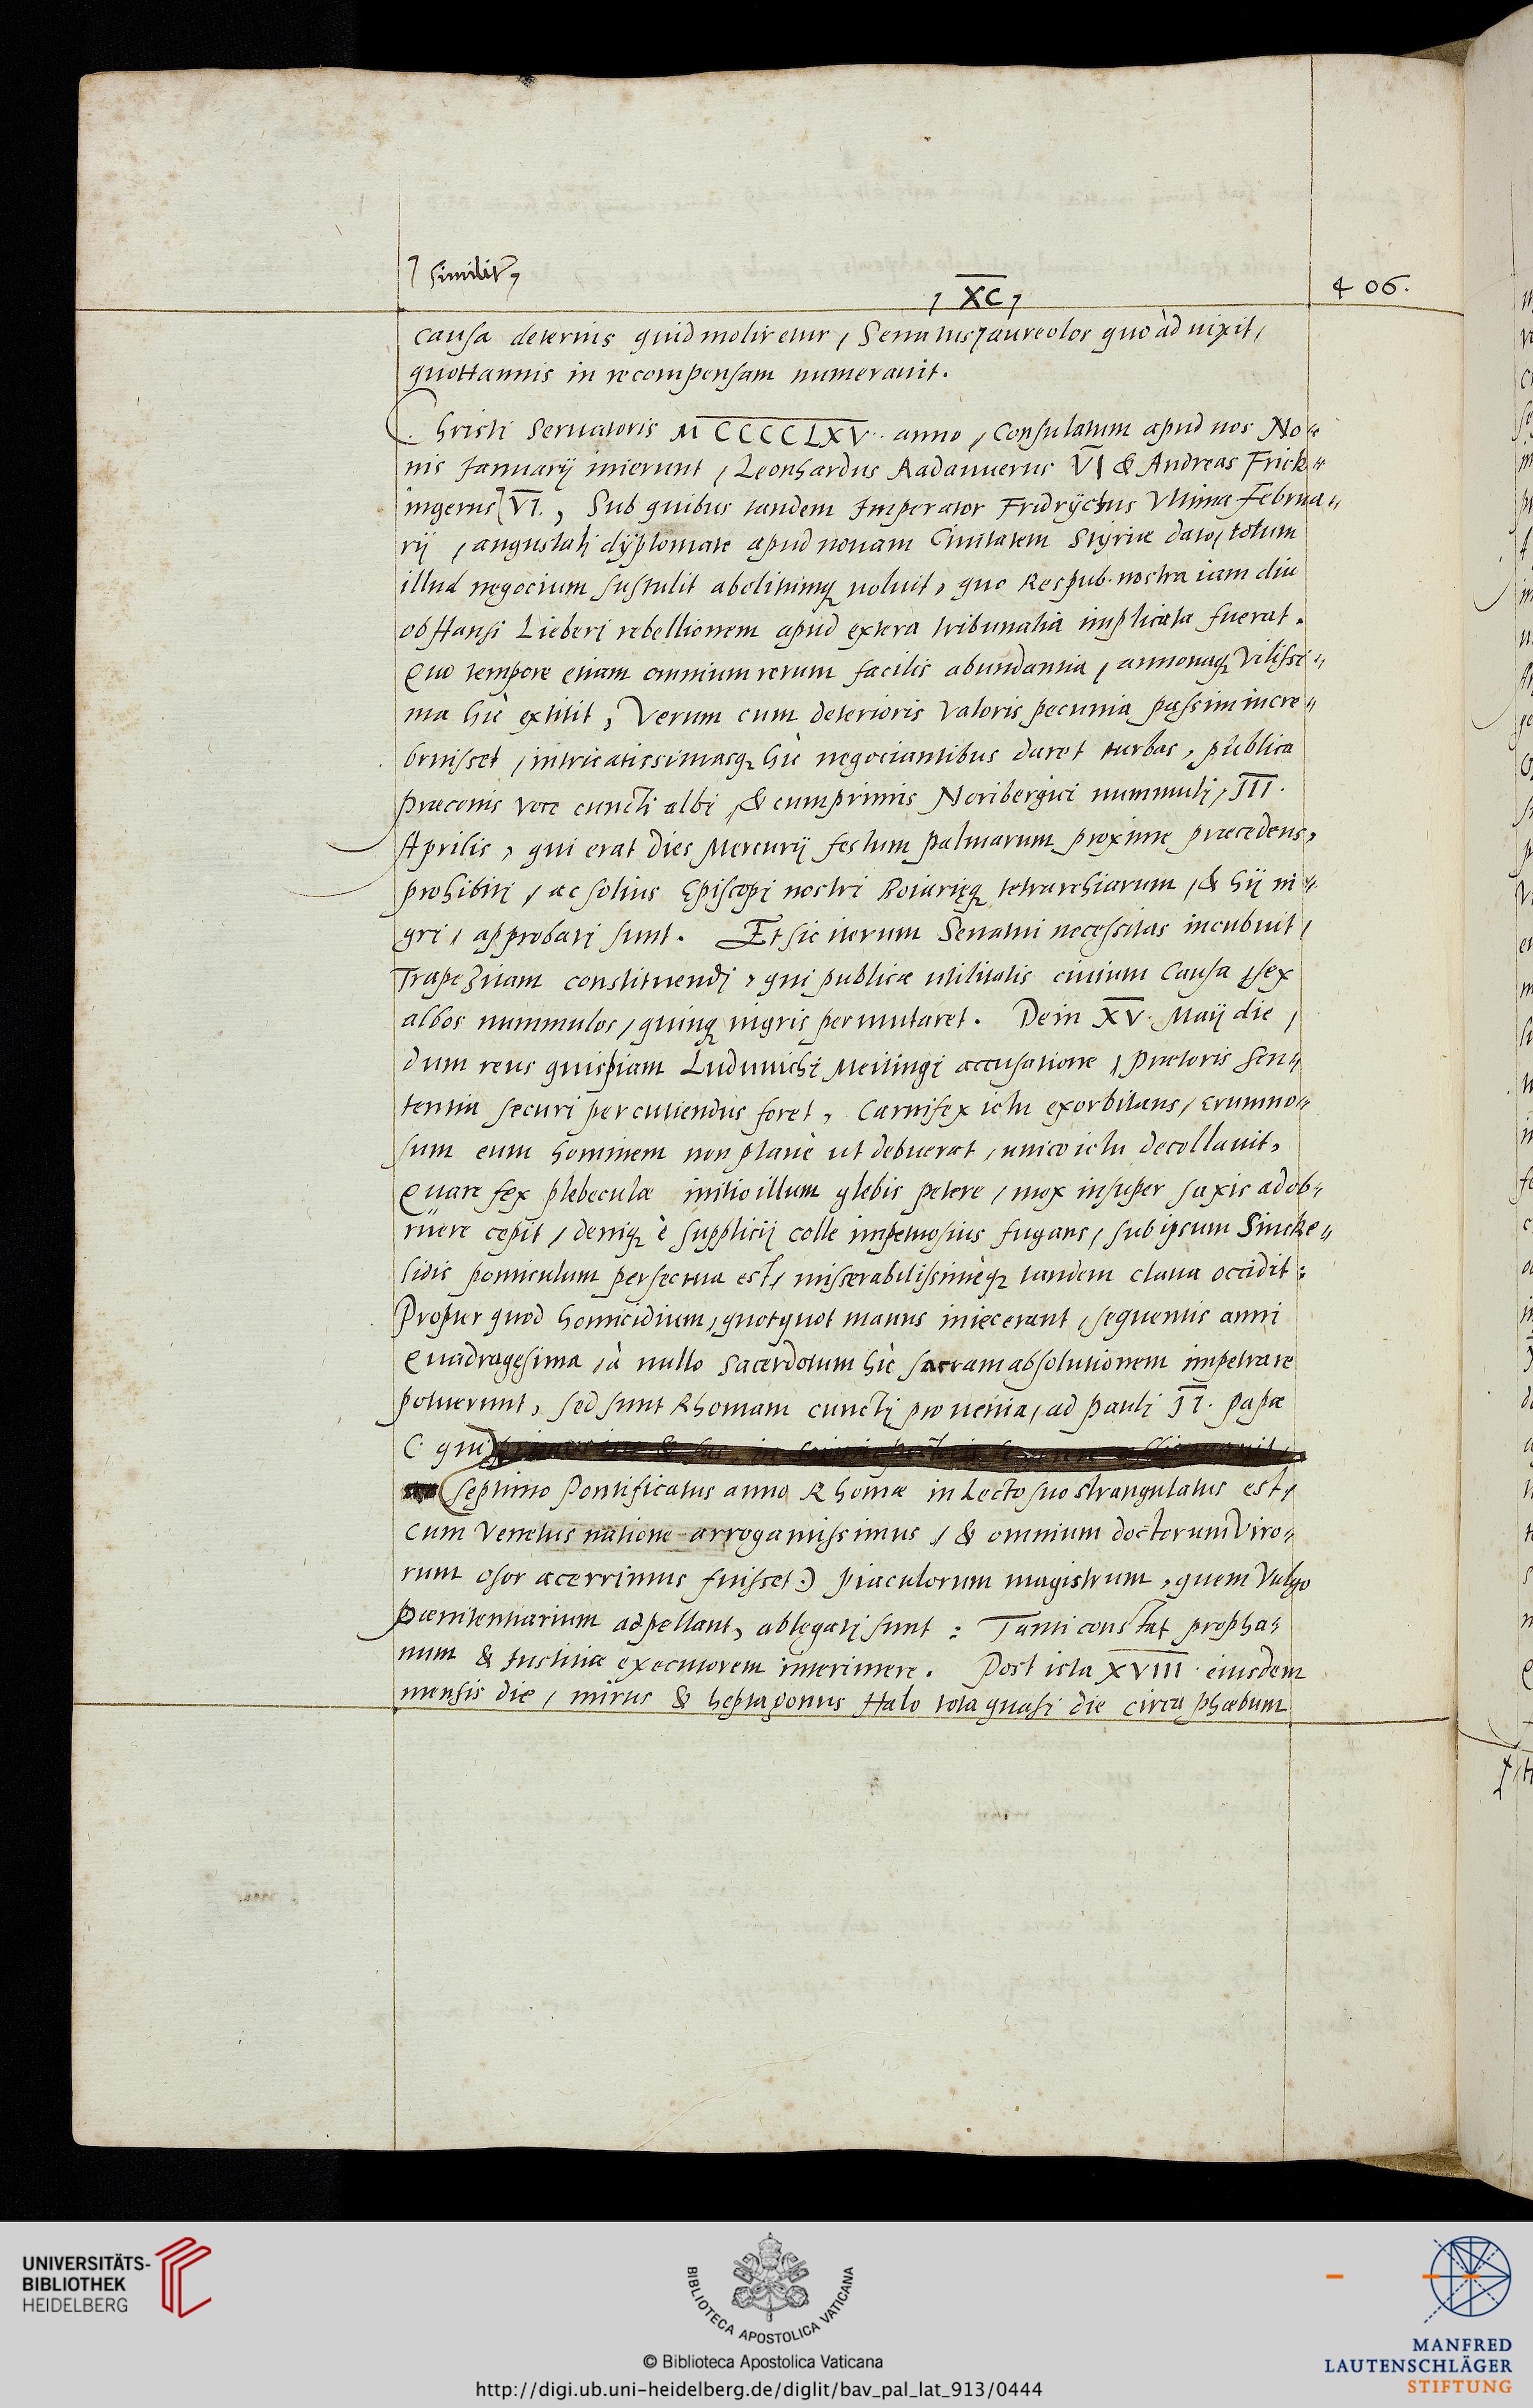 ⁊ similit᷒,
, XC ,
406.
causa deterius quid moliretur, Senatus⁊ aureolos quoàd uixit,
quottannis in recompensam numerauit.
Christi Seruatoris MCCCCLXV. anno, Consulatum apud nos No-
nis Januarij inierunt, Leonhardus Radauuerus VI & Andreas Frick-
ingerus⁊ VI., Sub quibus tandem Imperator Fridrÿchus Vltima Februa-
rij, augustalj dÿplomate apud nouam Ciuitatem Styriæ dato, totum
illud negocium sustulit abolitumq; uoluit, quo Respub. nostra iam diu
ob Hansi Lieberj rebellionem apud extera tribunalia implicata fuerat.
Quo tempore etiam omnium rerum facilis abundantia, annonaq; Vilissi-
ma hìc extitit, Verum cum deterioris Valoris pecunia passim incre-
bruisset, intricatissimasq; hìc negociantibus daret turbas, publica
præconis voce cuncti albi, & cumprimis Noribergici nummulj, III.
Aprilis, qui erat dies Mercurij festum palmarum proxime præcedens,
prohibiti, ac solius Episcopi nostri Boiarięq; tetrarchiarum, & hij ni-
gri, approbatj sunt. Et sic iterum Senatui necessitas incubuit,
Trapezitam constituendj, qui publicæ utilitatis ciuium Causa, sex
albos nummulos, quinq; nigris permutaret. Dein XV. Maij die,
dum reus quispiam Luduuichi Meitingi accusatione, Prætoris sen-
tentia securi percutiendus foret, Carnifex ictu exorbitans, Erumno-
sum eum hominem non planè ut debuerat, unico ictu decollauit,
Quare fex plebeculæ initio illum glebis petere, mox insuper saxis adob-
rüere cępit, deniq; è supplicij colle impetuosius fugans, sub ipsum Sincke-
lidis ponticulum persecuta est, misserabilissimèq; tandem claua occidit:
Propter quod homicidium, quotquot manus iniecerant, sequentis anni
Quadragesima, à nullo Sacerdotum hìc sacram absolutionem impetrare
potuerunt, sed sunt Rhomam cunctj pro uenia, ad Pauli II. Papæ
C. qui
septimo Pontificatus anno Rhomæ in Lecto suo strangulatus est,
cum Venetus natione arrogantissimus, & omnium doctorum Viro-
rum osor acerrimus fuisset.) piaculorum magistrum, quem Vulgo
pænitentiarium adpellant, ablęgatj sunt: Tanti constat propha-
num & Iustitiæ executorem interimere. Post ista XVIII. eiusdem
mensis die, mirus & heptagonus Halo tota quasi die circa phæbum
UNIVERSITÄTS-
BIBLIOTHEK
HEIDELBERG
BIBLIOTECA APOSTOLICA VATICANA
© Biblioteca Apostolica Vaticana
http://digi.ub.uni-heidelberg.de/diglit/bav_pal_lat_913/0444
MANFRED
LAUTENSCHLÄGER
STIFTUNG